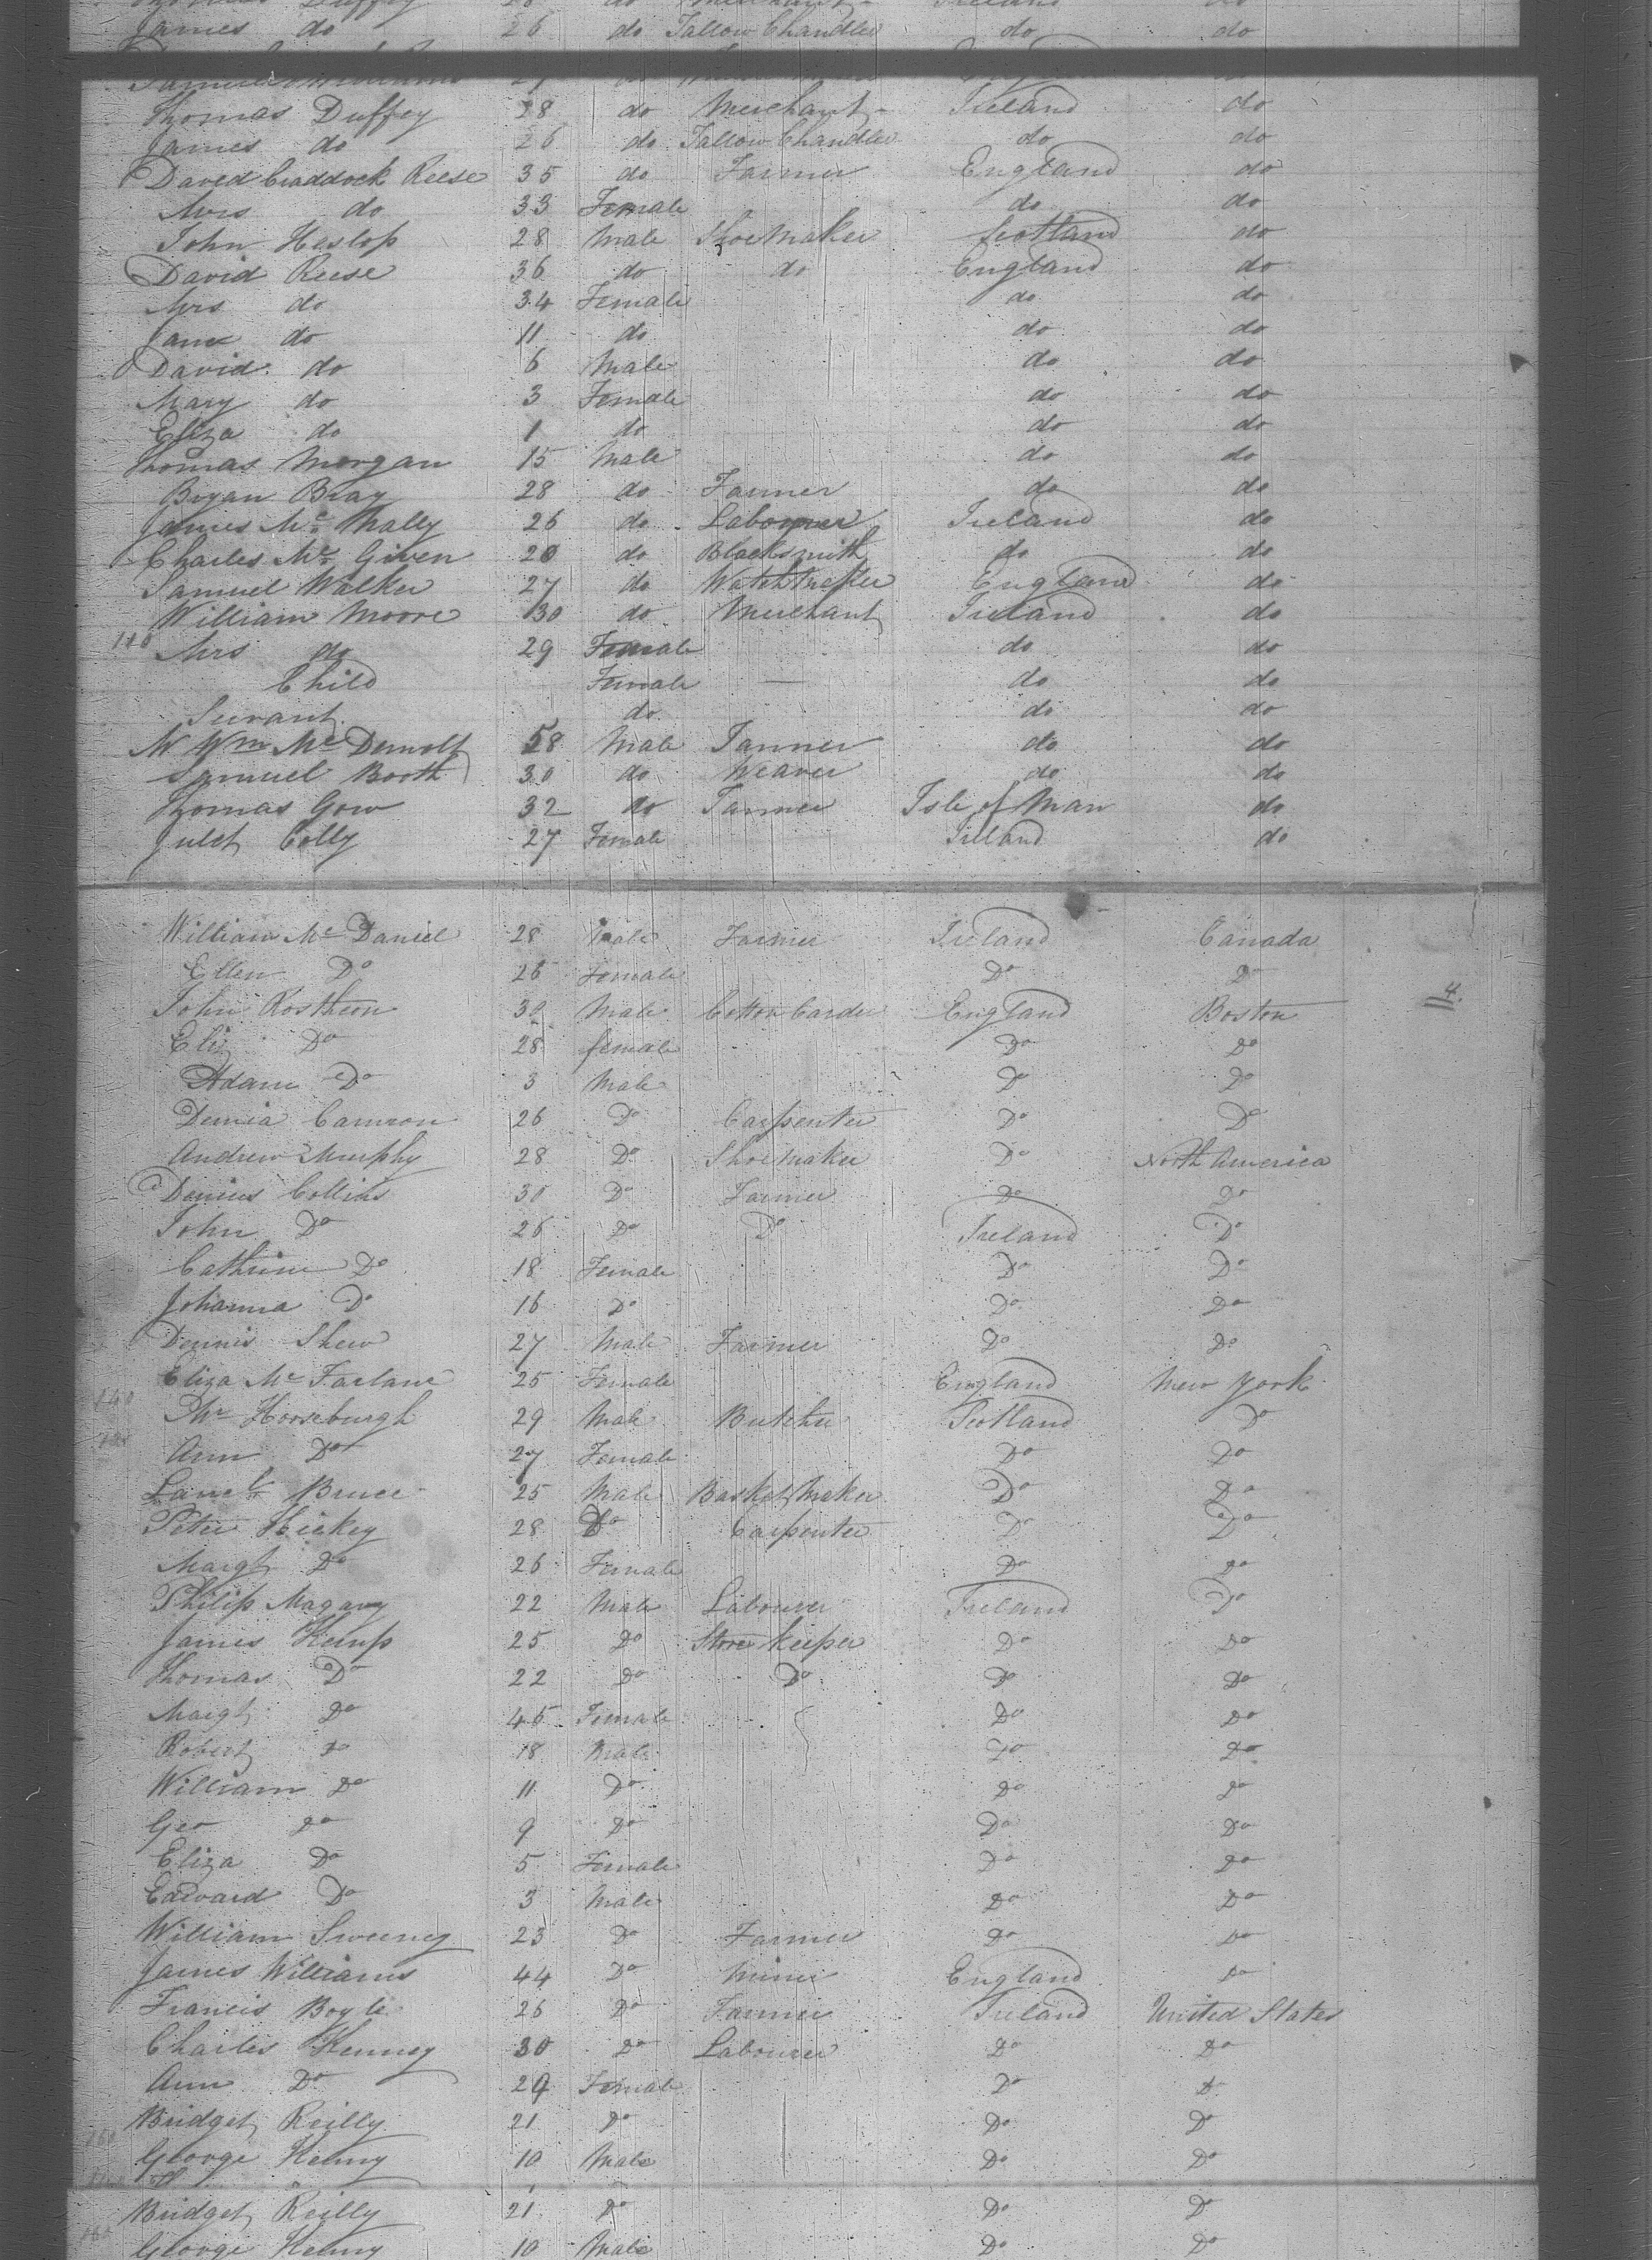 James do 26 do Tallow Chandler do do
Thomas Duffey 28 do Merchant Ireland do
James do 26 do Tallow Chandler do do
David Craddock Reese 35 do Farmer England do
Mrs do 33 Female do do
John Heslop 28 Male Shoe Maker Scotland do
David Reese 36 do do England do
Mrs do 34 Female do do
Jane do 11 do do do
David do 6 Male do do
Mary do 3 Female do do
Eliza do 1 do do do
Thomas Morgan 15 Male do do
Bryan Bray 28 do Farmer do do
James Mc Nally 26 do Labourer Ireland do
Charles Mc Given 20 do Blacksmith do do
Samuel Walker 27 do Watch Maker England do
William Moore 30 do Merchant Ireland do
110 Mrs do 29 Female do do
Child Female do do
Servant do do do
Wm Mc Dermott 58 Male Tanner do do
Samuel Booth 30 do Weaver do do
Thomas Gow 32 do Tanner Isle of Man do
Julet Colly 27 Female Ireland do
William Mc Daniel 28 Male Farmer Ireland Canada
Ellen Do 26 Female Do Do
John Rostheon 30 Male Cotton Carder England Boston
Eliz Do 28 female Do Do
Adam Do 3 Male Do Do
Camron 26 Do Carpenter Do Do
Andrew Murphy 28 Do Shoemaker Do North America
Collins 30 Do Farmer Do Do
John Do 26 Do Do Ireland Do
Cathrine Do 18 Female Do Do
Johanna Do 16 Do Do Do
Dennis Shew 27 Male Farmer Do Do
Eliza Mc Farlane 25 Female England New York
Mr Horseburgh 29 Male Butcher Scotland Do
Ann Do 27 Female Do Do
Bruce 25 Male Basket Maker Do Do
Peter Hickey 28 Do Carpenter Do Do
Margt Do 26 Female Do Do
Philip Magany 22 Male Labourer Ireland Do
James Kemp 25 Do Store Keeper Do Do
Thomas Do 22 Do Do Do Do
Margt Do 45 Female Do Do
Robert Do 18 Male Do Do
William Do 11 Do Do Do
Geo Do 9 Do Do Do
Eliza Do 5 Female Do Do
Edward Do 3 Male Do Do
William Sweeney 23 Do Farmer Do Do
James Williams 44 Do Miner England Do
Francis Boyle 26 Do Farmer Ireland United States
Charles Kenney 30 Do Labourer Do Do
Ann Do 29 Female Do Do
Bridget Reilly 21 Do Do Do
George Kenny 10 Male Do Do
Bridget Reilly 21 Do Do Do
George Kenny 10 Male Do Do